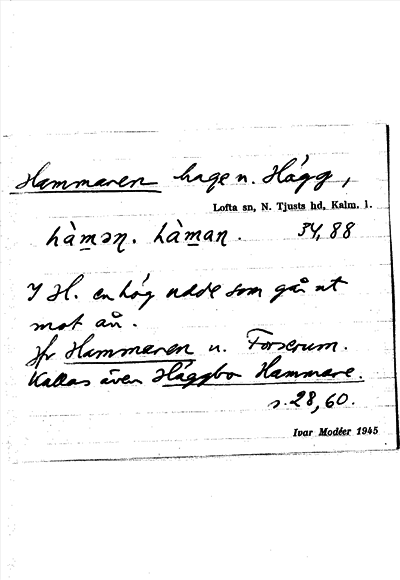 Hammaren hage n. Hägg,
Lofta sn, N. Tjusts hd, Kalm. l.
hàmən. hàman. 34,88
I H. en hög udde som går ut
mot ån.
Jfr Hammaren u. Forserum.
Kallas även Häggbo Hammare.
s.28,60.
Ivar Modéer 1945